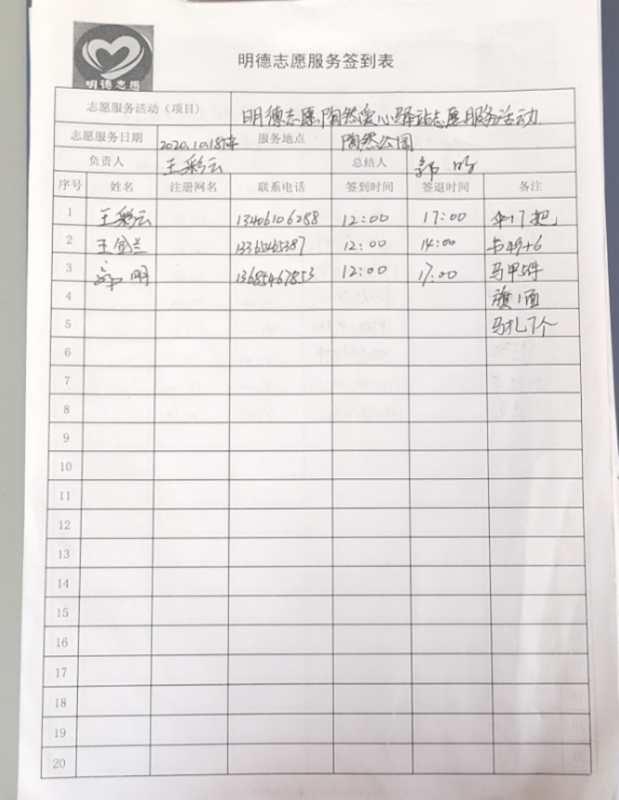 明德志愿
明德志愿服务签到表
志愿服务活动（项目） 明德志愿陶然爱心驿站志愿服务活动
志愿服务日期 2020.10.18 服务地点 陶然公园
负责人 王彩云 总结人 郭明
序号 姓名 注册网名 联系电话 签到时间 签退时间 备注
1 王彩云 13406106288 12:00 17:00 伞17把
2 王金兰 12:00 14:00 书49+6
3 郭明 13685467853 12:00 17:00 马甲5件
4 旗1面
5 马扎7个
6
7
8
9
10
11
12
13
14
15
16
17
18
19
20